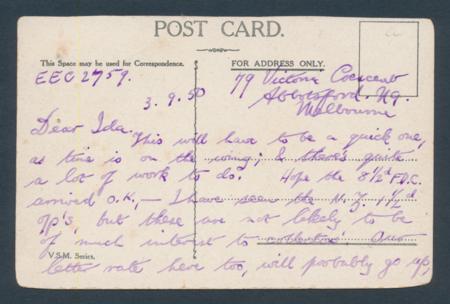 POST CARD.
This Space may be used for Correspondence.
FOR ADDRESS ONLY.
EEC 2759.
79 Victoria Crescent
Abbotsford. N9.
Melbourne
3. 9. 50
Dear Ida. This will have to be a quick one,
as time is on the wing, & there's quite
a lot of work to do. Hope the 8½d F.D.C.
arrived O.K., — I have seen the N.Z. 1½d
op's, but these are not likely to be
of much interest to Our
V.S.M. Series.
letter rate here too, will probably go up,